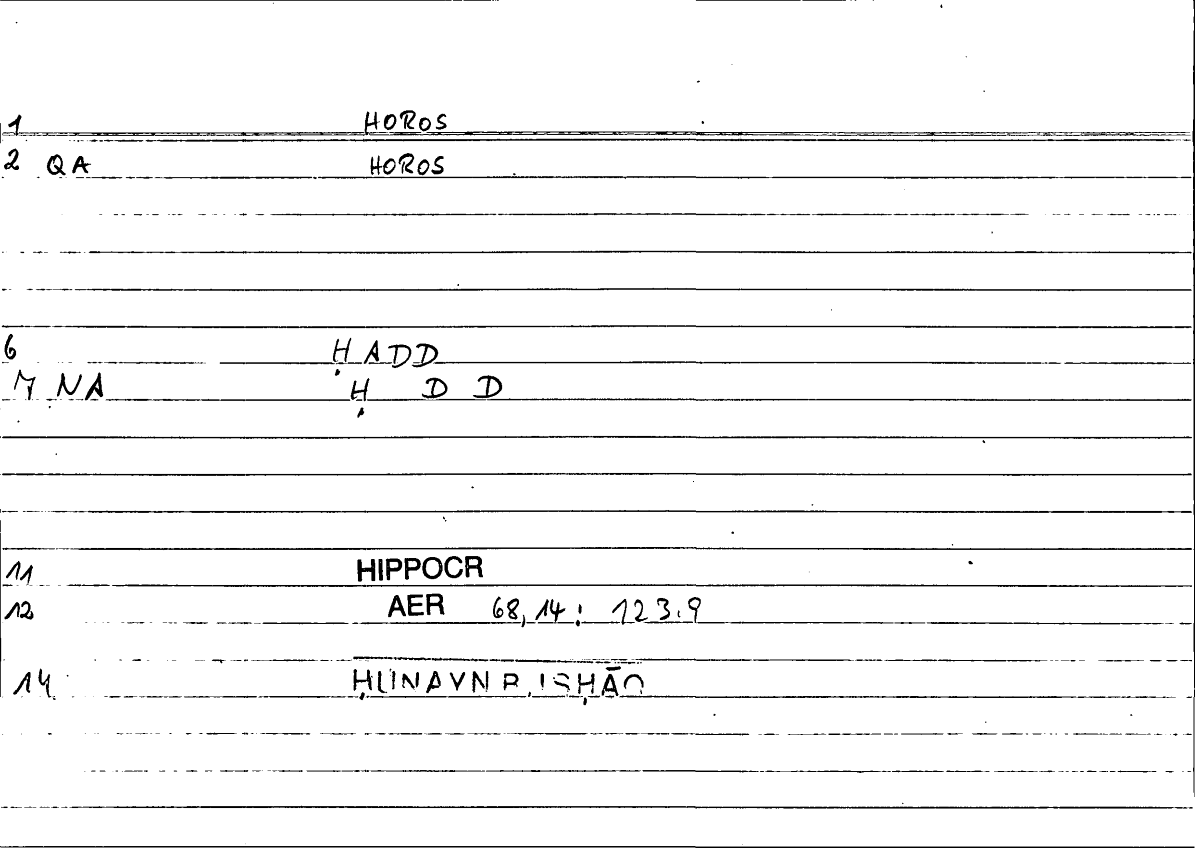 1 HOROS
2 QA HOROS
6 ḤADD
7 NA Ḥ D D
11 HIPPOCR
12 AER 68,14: 123.9
14 ḤUNAYN B. ISḤĀQ